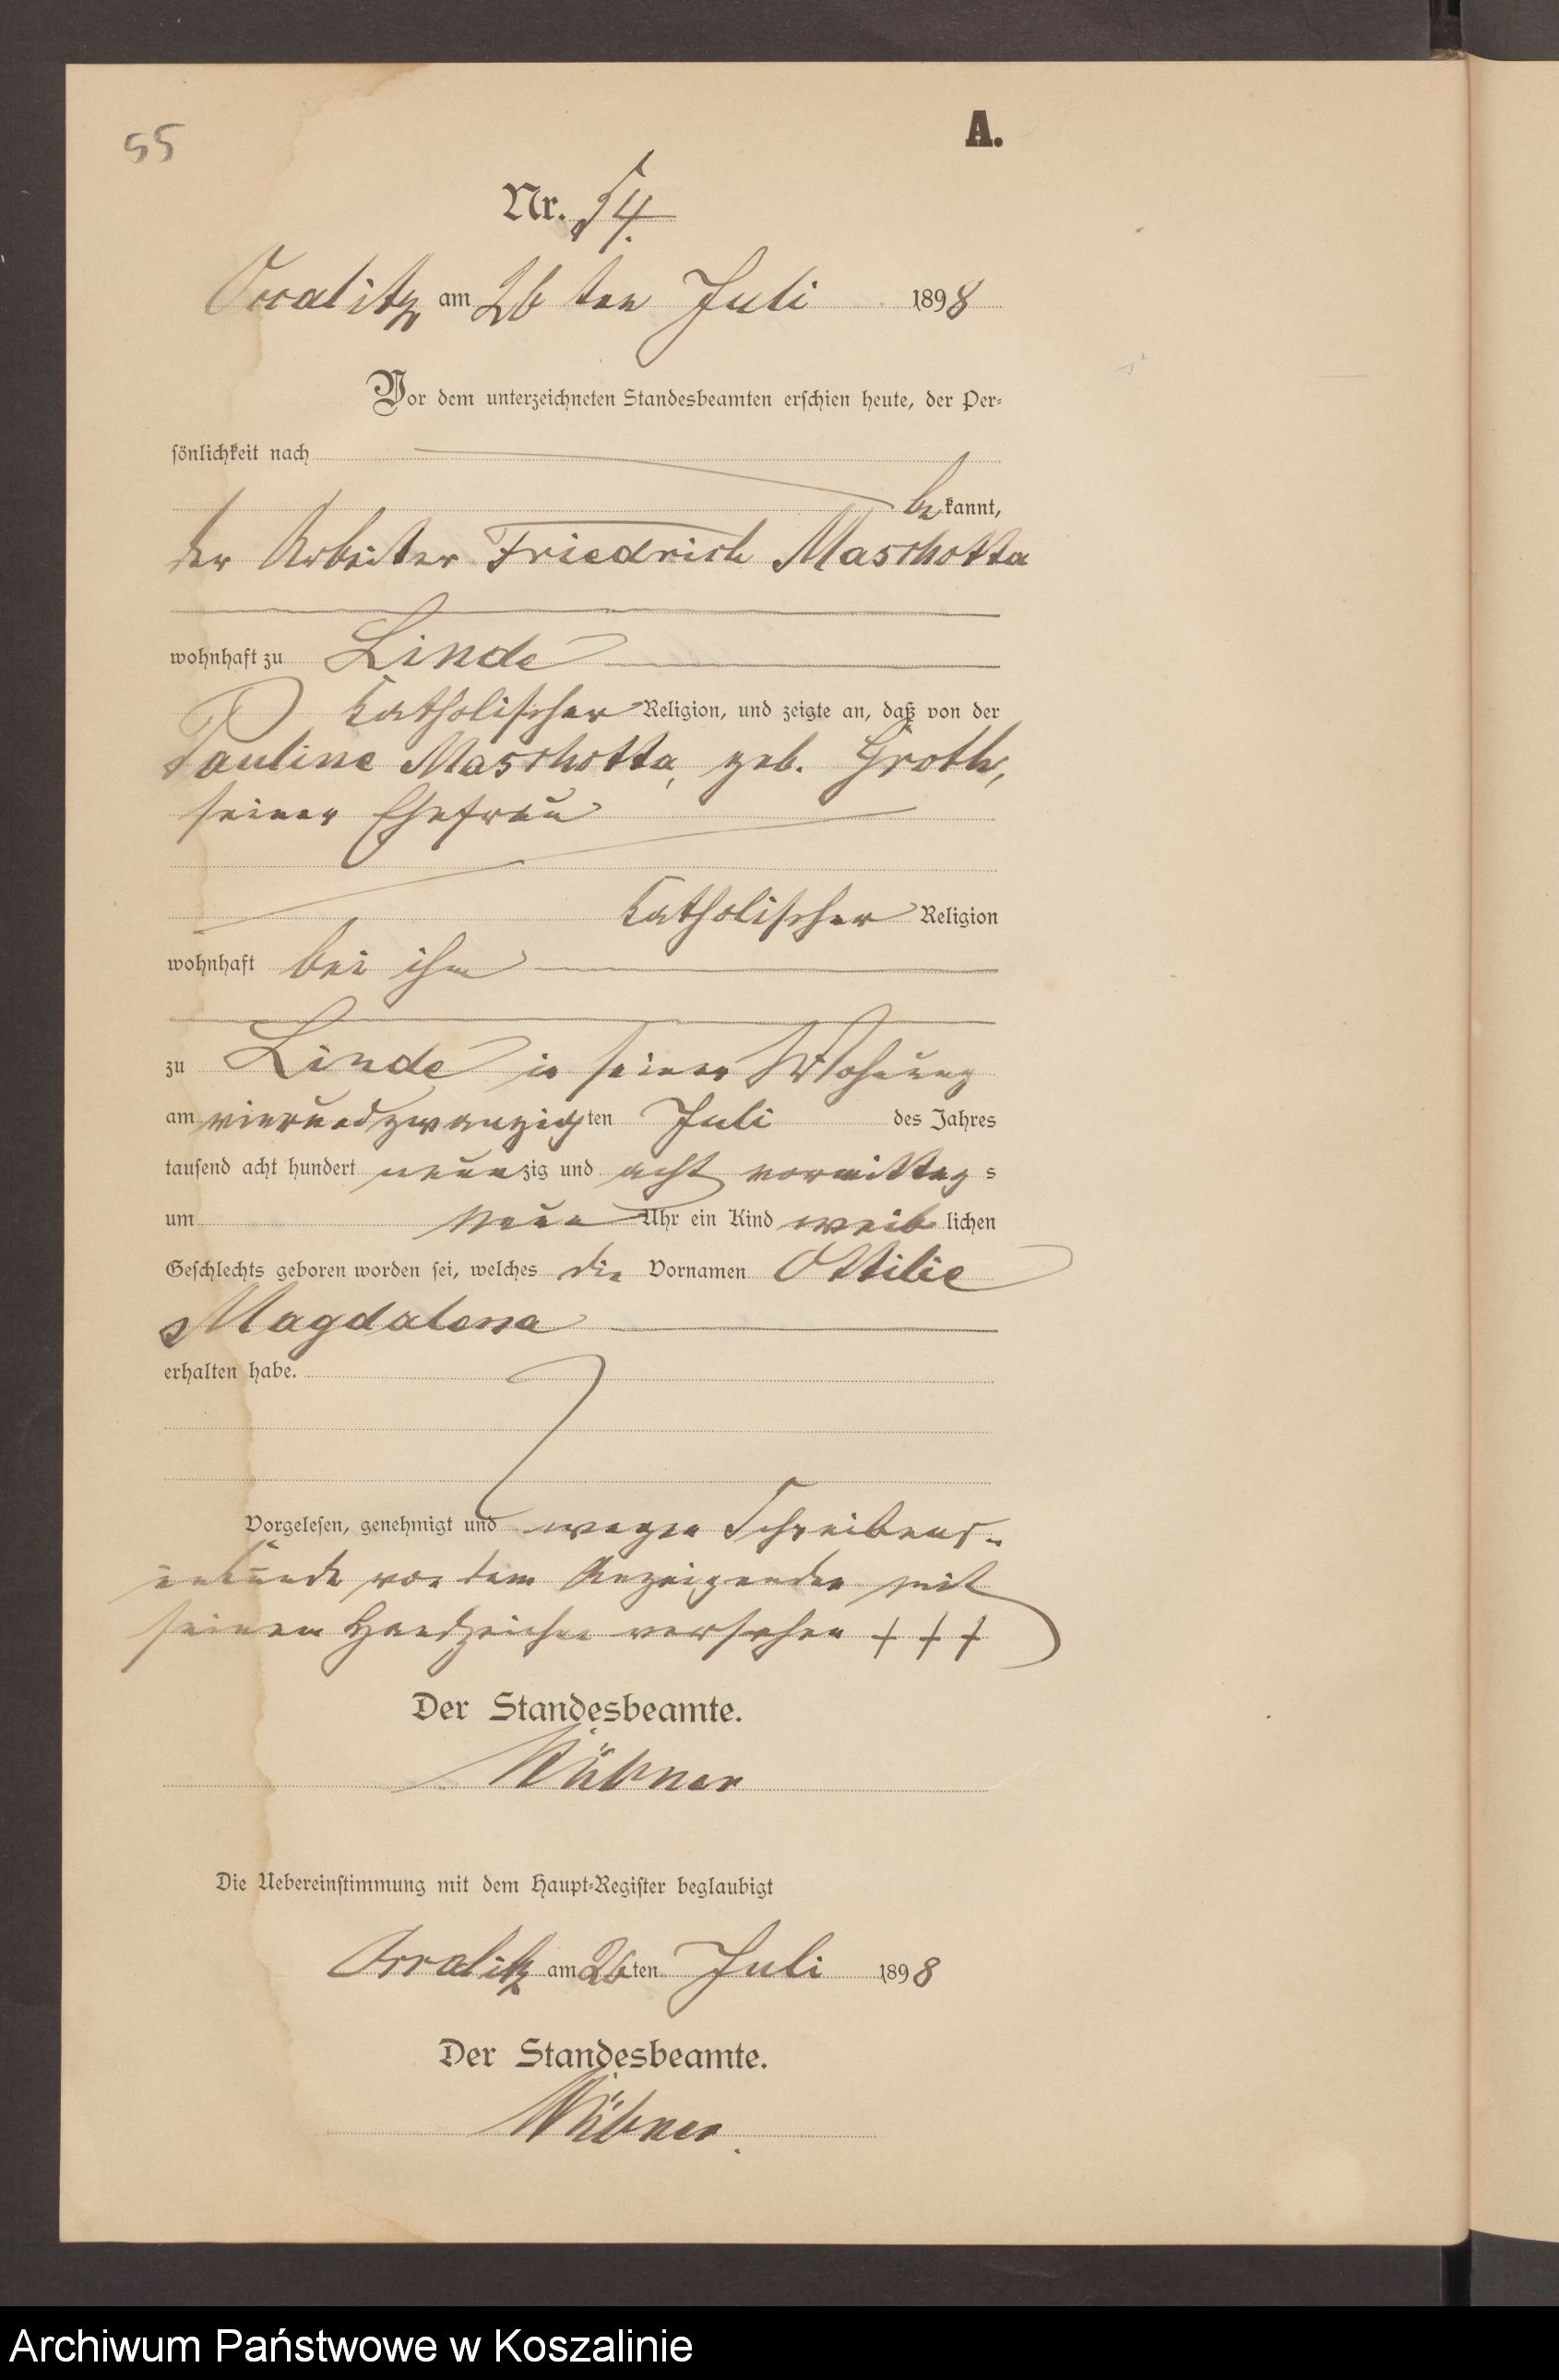 55
A.
Nr. 54.
am 26ten Juli 1898
Vor dem unterzeichneten Standesbeamten erschien heute, der Per-
sönlichkeit nach
bekannt,
der Arbeiter Friedrich Maschotta
wohnhaft zu Linde
katholischer Religion, und zeigte an, daß von der
Pauline Maschotta, geb. Groth,
seiner Ehefrau
katholischer Religion
wohnhaft bei ihm
zu Linde in seiner Wohnung
am vierundzwanzigten Juli des Jahres
tausend acht hundert neunzig und acht vormittags
um neun Uhr ein Kind weiblichen
Geschlechts geboren worden sei, welches die Vornamen Ottilie
Magdalena
erhalten habe.
Vorgelesen, genehmigt und wegen Schreibens-
unkunde von dem Anzeigenden mit
seinem Handzeichen versehen + + +
Der Standesbeamte.
Die Uebereinstimmung mit dem Haupt-Register beglaubigt
am 26ten Juli 1898
Der Standesbeamte.
Archiwum Państwowe w Koszalinie